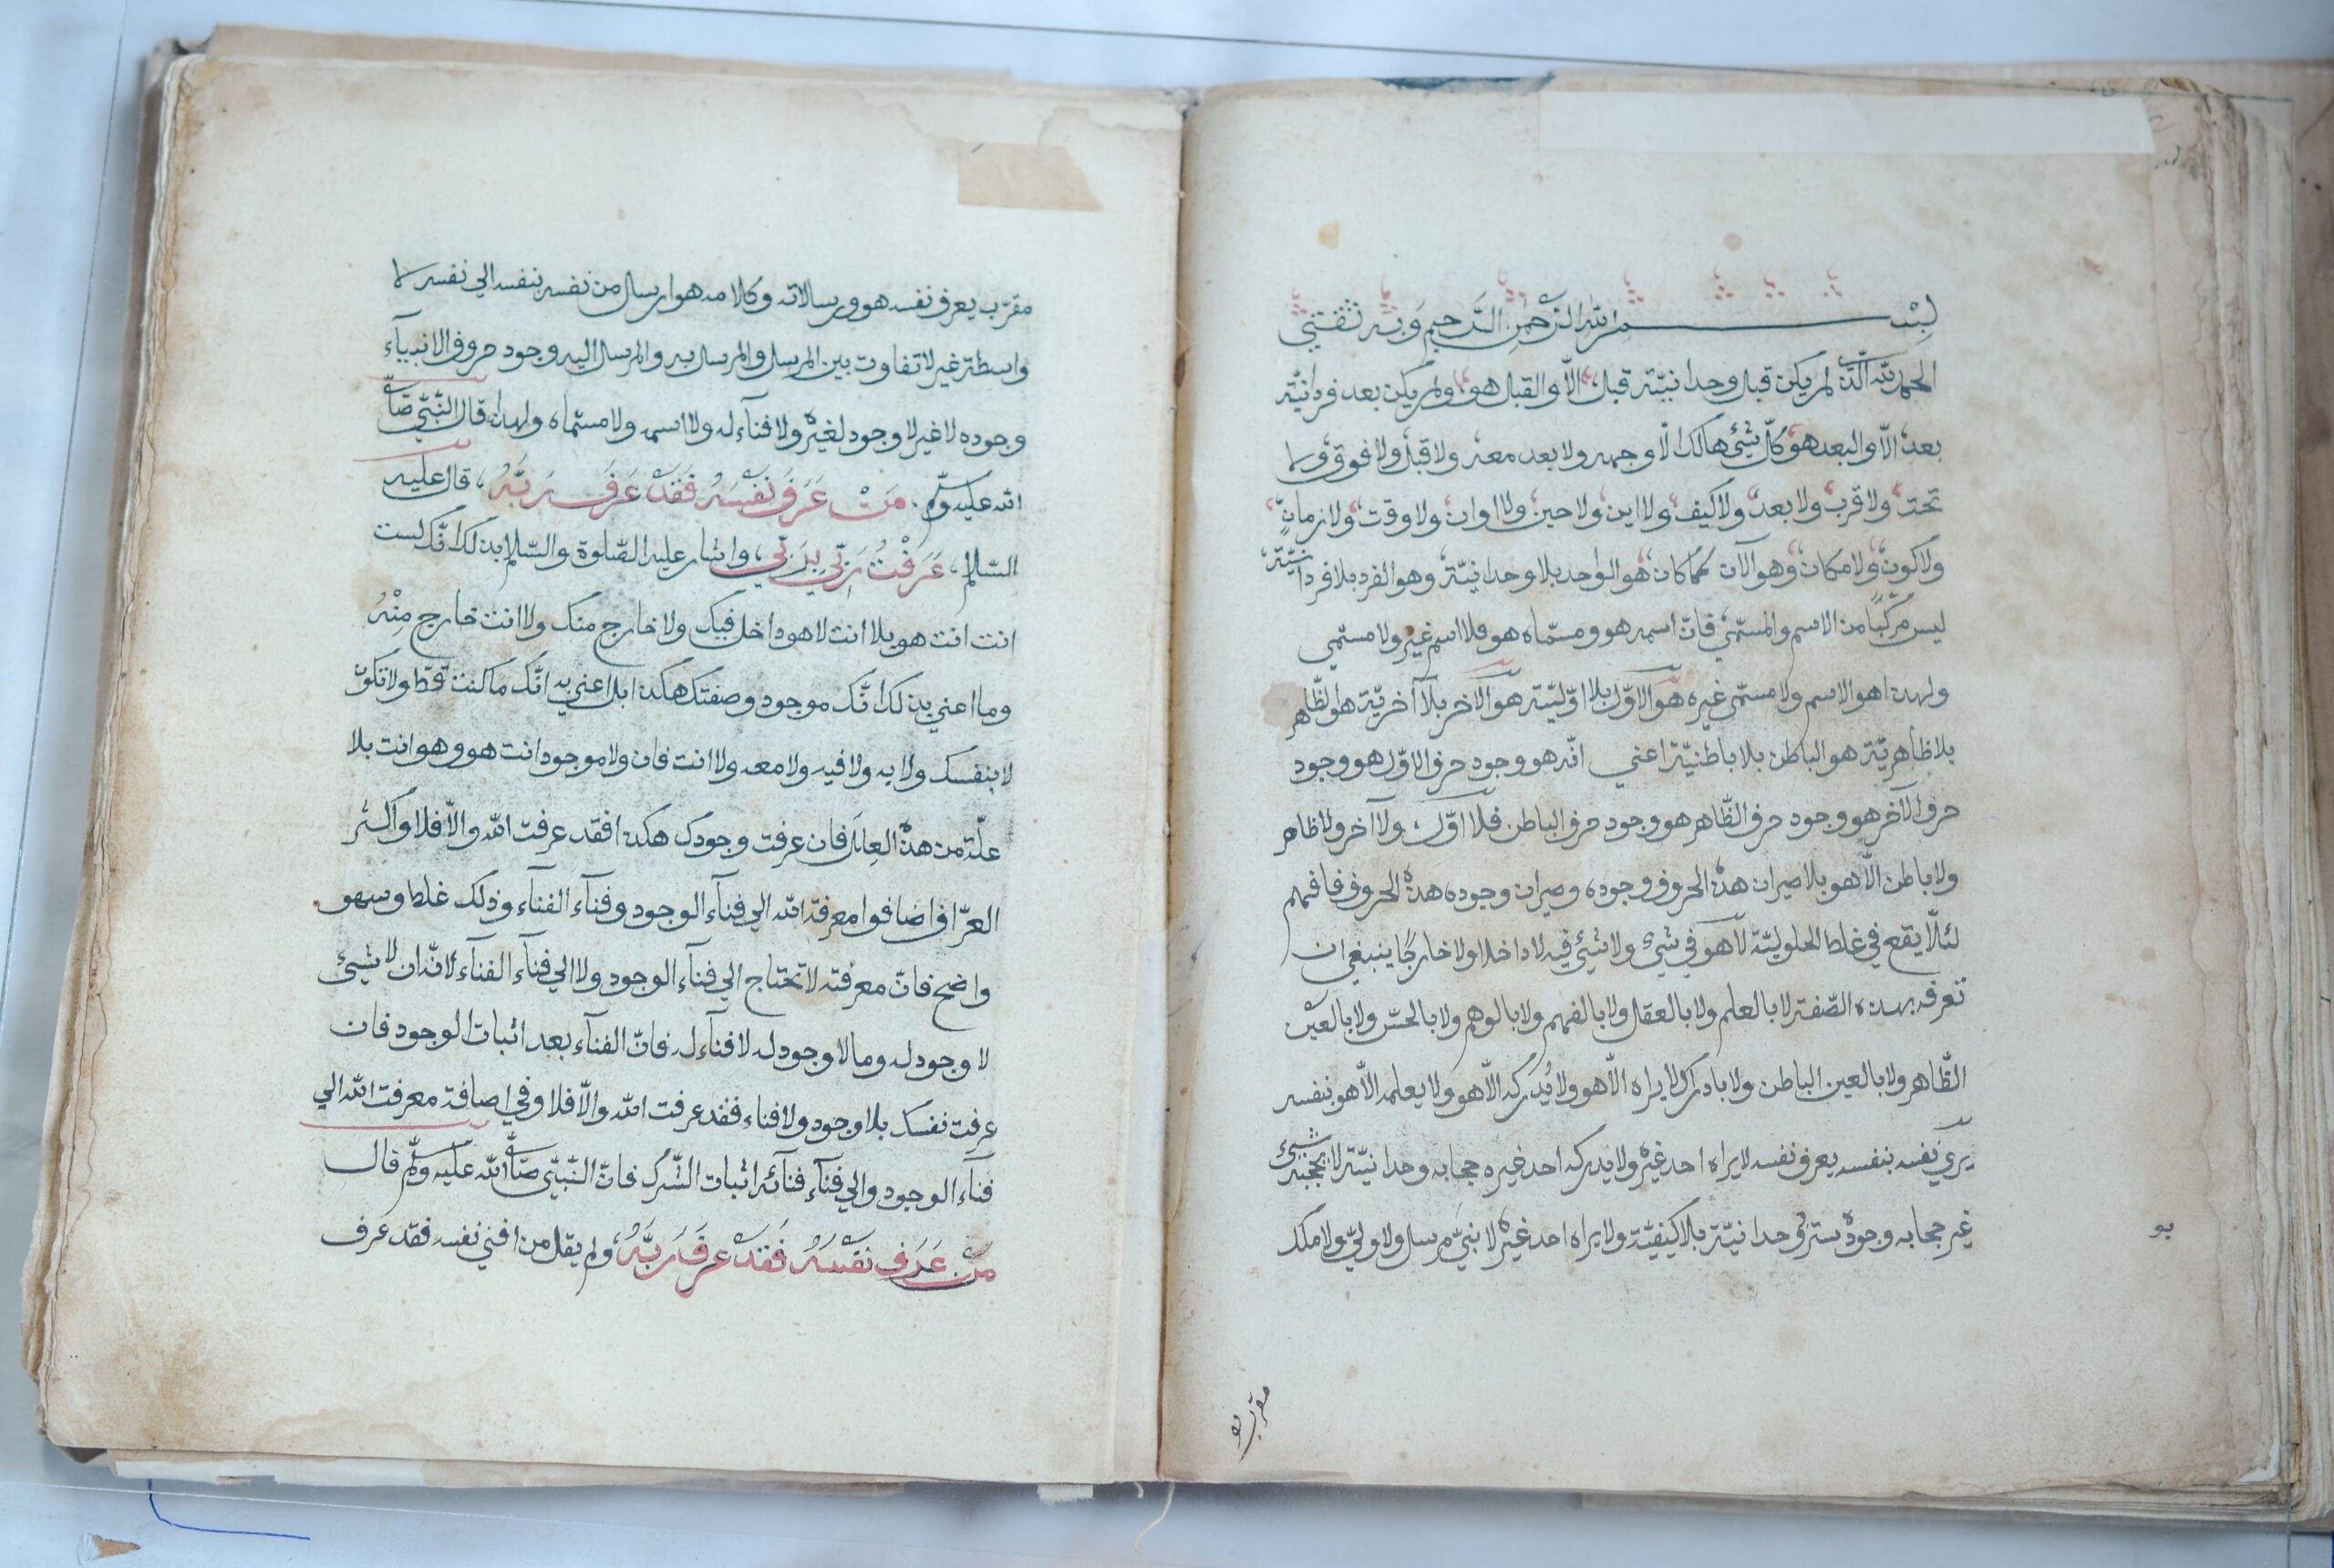 بسم الله الرحمن الرحيم وبه ثقتي
الحمد لله الذي لم يكن قبل وحدانيته قبل الّا والقبل هو ولم يكن بعد فردانيّته
بعد الّا والبعد هو كلّ شيء هالك الّا وجهه ولا بعد معه ولا قبل ولا فوق ولا
تحت ولا قرب ولا بعد ولا كيف ولا اين ولا حين ولا اوان ولا وقت ولا زمان
ولا كون ولا مكان وهو الآن كما كان هو الواحد بلا وحدانيّة وهو الفرد بلا فردانيّة
ليس مركّبا من الاسم والمسمّي فانّ اسمه هو ومسمّاه هو فلا اسم غيره ولا مسمّي
ولهذا هو الاسم ولا مسمّي غيره هو الاوّل بلا اوّليّة هو الآخر بلا آخريّة هو الظّاهر
بلا ظاهريّة هو الباطن بلا باطنيّة اعني انّه هو وجود حرف الاوّل هو وجود
حرف الآخر هو وجود حرف الظّاهر هو وجود حرف الباطن فلا اوّل ولا آخر ولا ظاهر
ولا باطن الّا هو بلا صيران هذه الحروف وجوده وصيران وجوده هذه الحروف فافهم
لئلّا يقع في غلط الحلوليّة لا هو في شيء ولا شيء فيه لا داخلا ولا خارجا ينبغي ان
تعرفه بهذه الصّفة لا بالعلم ولا بالعقل ولا بالفهم ولا بالوهم ولا بالحسّ ولا بالعين
الظّاهر ولا بالعين الباطن ولا بادراك لا يراه الّا هو ولا يُدركه الّا هو ولا يعلمه الّا هو بنفسه
يري نفسه بنفسه يعرف نفسه لا يراه احد غيره ولا يدركه احد غيره حجابه وحدانيّته لا يحجبه شيئ
غير حجابه وجوده ستر وحدانيّته بلا كيفيّة ولا يراه احد غيره لا نبيّ مرسل ولا وليّ ولا ملك
مقرب
مقرّب يعرف نفسه هو ورسالاته وكلامه هو ارسال من نفسه بنفسه الي نفسه لا
واسطة غير لا تفاوت بين المرسل والمرسل به والمرسل اليه وجود حروف الانبياء
وجوده لا غير لا وجود لغيره ولا فناء له ولا اسمه ولا مسمّاه ولهذا قال النّبيّ صلّي
الله عليه وسلّم مَنْ عَرَفَ نَفْسَهُ فَقَدْ عَرَفَ رَبَّهُ، قال عليه
السّلام، عَرَفْتُ رَبّي بِرَبّي، واشار عليه الصّلوة والسّلام بذلك انّك لست
انت انت هو بلا انت لا هو داخل فيك ولا خارج منك ولا انت خارج مِنْهُ
وما اعني بذلك انّك موجود وصفتك هكذا بل اعني به انّك ما كنت قطّ ولا تكون
لا بنفسك ولا به ولا فيه ولا معه ولا انت فان ولا موجود انت هو وهو انت بلا
علّة من هذه العِلَل فان عرفت وجودك هكذا فقد عرفت الله والّا فلا واكثر
العرّاف اضافوا معرفة الله الي فناء الوجود وفناء الفناء وذلك غلط وسهو
واضح فانّ معرفته لا تحتاج الي فناء الوجود ولا الي فناء الفناء لانّه ان لا شيئ
لا وجود له وما لا وجود له لا فناء له فانّ الفناء بعد اثبات الوجود فان
عرفت نفسك بلا وجود ولا فناء فقد عرفت الله والّا فلا وفي اضافة معرفت الله الي
فناء الوجود والي فناء فنائه اثبات الشّرك فانّ النّبيّ صلّي الله عليه وسلّم قال
مَنْ عَرَفَ نَفْسَهُ فَقَدْ عَرَفَ رَبَّهُ، ولم يقل من افني نفسه فقد عرف